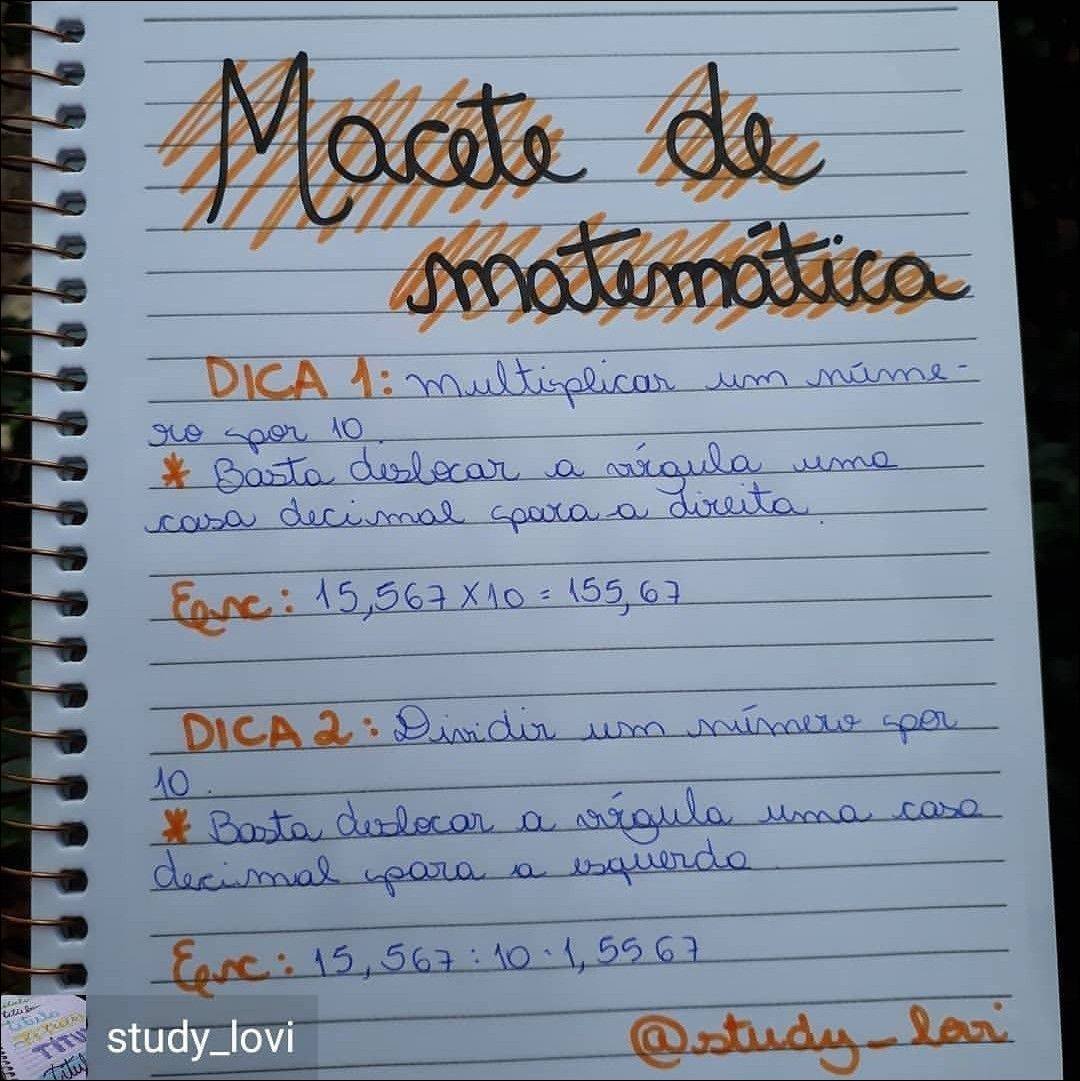 Macete de
matemática
DICA 1: multiplicar um núme-
ro por 10.
* Basta deslocar a vírgula uma
casa decimal para a direita.
Exc: 15,567 X 10 = 155,67
DICA 2: Dividir um número por
10.
* Basta deslocar a vírgula uma casa
decimal para a esquerda.
Exc: 15,567 : 10 = 1,5567
@study_lovi
study_lovi